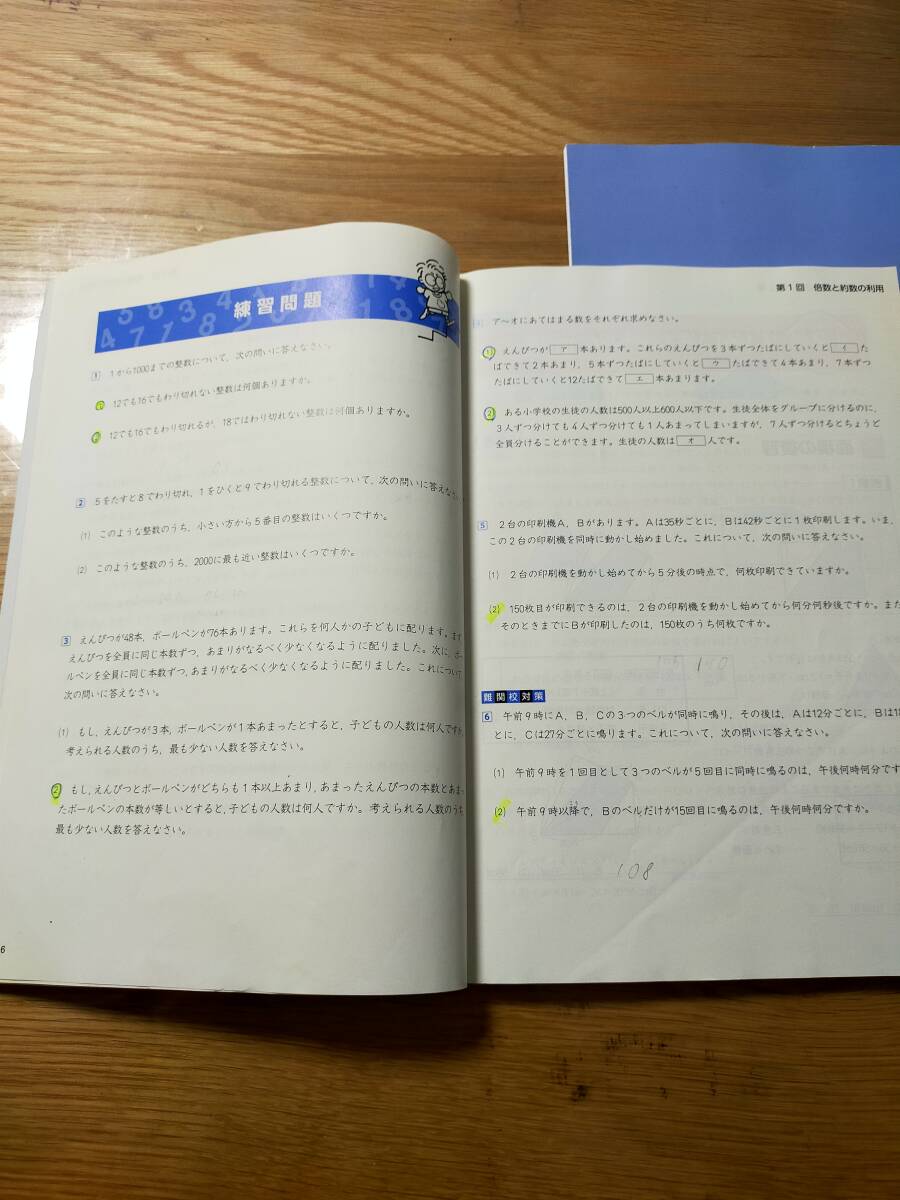 練習問題
1 1から1000までの整数について，次の問いに答えなさい。
(1) 12でも16でもわり切れない整数は何個ありますか。
(2) 12でも16でもわり切れるが，18ではわり切れない整数は何個ありますか。
2 5をたすと8でわり切れ，1をひくと9でわり切れる整数について，次の問いに答えなさい
(1) このような整数のうち，小さい方から5番目の整数はいくつですか。
(2) このような整数のうち，2000に最も近い整数はいくつですか。
3 えんぴつが48本，ボールペンが76本あります。これらを何人かの子どもに配ります。まず
えんぴつを全員に同じ本数ずつ，あまりがなるべく少なくなるように配りました。次に，ボー
ルペンを全員に同じ本数ずつ，あまりがなるべく少なくなるように配りました。これについて
次の問いに答えなさい。
(1) もし，えんぴつが3本，ボールペンが1本あまったとすると，子どもの人数は何人ですか
考えられる人数のうち，最も少ない人数を答えなさい。
(2) もし，えんぴつとボールペンがどちらも1本以上あまり，あまったえんぴつの本数とあま
ったボールペンの本数が等しいとすると，子どもの人数は何人ですか。考えられる人数のうち
最も少ない人数を答えなさい。
6
第1回 倍数と約数の利用
4 ア～オにあてはまる数をそれぞれ求めなさい。
(1) えんぴつが ア 本あります。これらのえんぴつを3本ずつたばにしていくと イ た
ばできて2本あまり，5本ずつたばにしていくと ウ たばできて4本あまり，7本ずつ
たばにしていくと12たばできて エ 本あまります。
(2) ある小学校の生徒の人数は500人以上600人以下です。生徒全体をグループに分けるのに，
3人ずつ分けても4人ずつ分けても1人あまってしまいますが，7人ずつ分けるとちょうど
全員分けることができます。生徒の人数は オ 人です。
5 2台の印刷機A，Bがあります。Aは35秒ごとに，Bは42秒ごとに1枚印刷します。いま，
この2台の印刷機を同時に動かし始めました。これについて，次の問いに答えなさい。
(1) 2台の印刷機を動かし始めてから5分後の時点で，何枚印刷できていますか。
(2) 150枚目が印刷できるのは，2台の印刷機を動かし始めてから何分何秒後ですか。また
そのときまでにBが印刷したのは，150枚のうち何枚ですか。
難関校対策
6 午前9時にA，B，Cの3つのベルが同時に鳴り，その後は，Aは12分ごとに，Bは18
とに，Cは27分ごとに鳴ります。これについて，次の問いに答えなさい。
(1) 午前9時を1回目として3つのベルが5回目に同時に鳴るのは，午後何時何分です
(2) 午前9時以降で，Bのベルだけが15回目に鳴るのは，午後何時何分ですか。
108